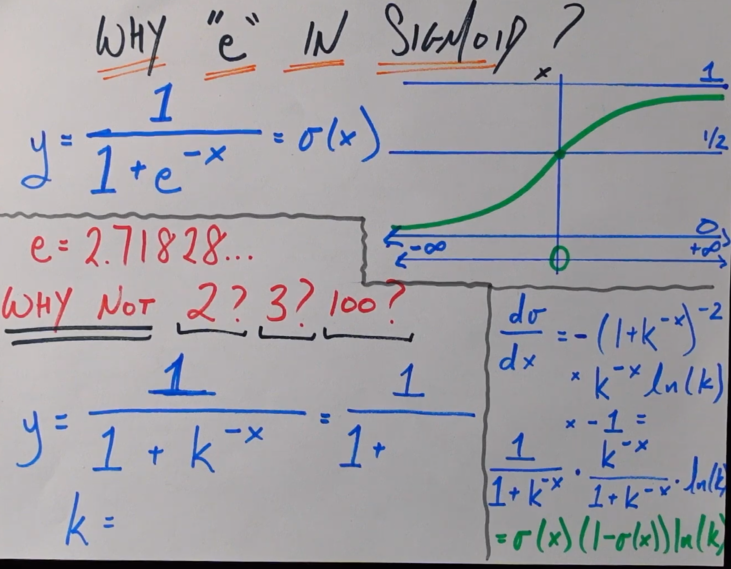 WHY "e" IN SIGMOID?
y = 1/(1 + e^-x) = σ(x)
x
1
1/2
0
-∞ +∞
0
e = 2.71828...
WHY NOT 2? 3? 100?
y = 1/(1 + k^-x) = 1/(1+
k =
dσ/dx = -(1+k^-x)^-2
× k^-x ln(k)
× -1 =
1/(1+k^-x) · k^-x/(1+k^-x) · ln(k
= σ(x)(1-σ(x))ln(k)